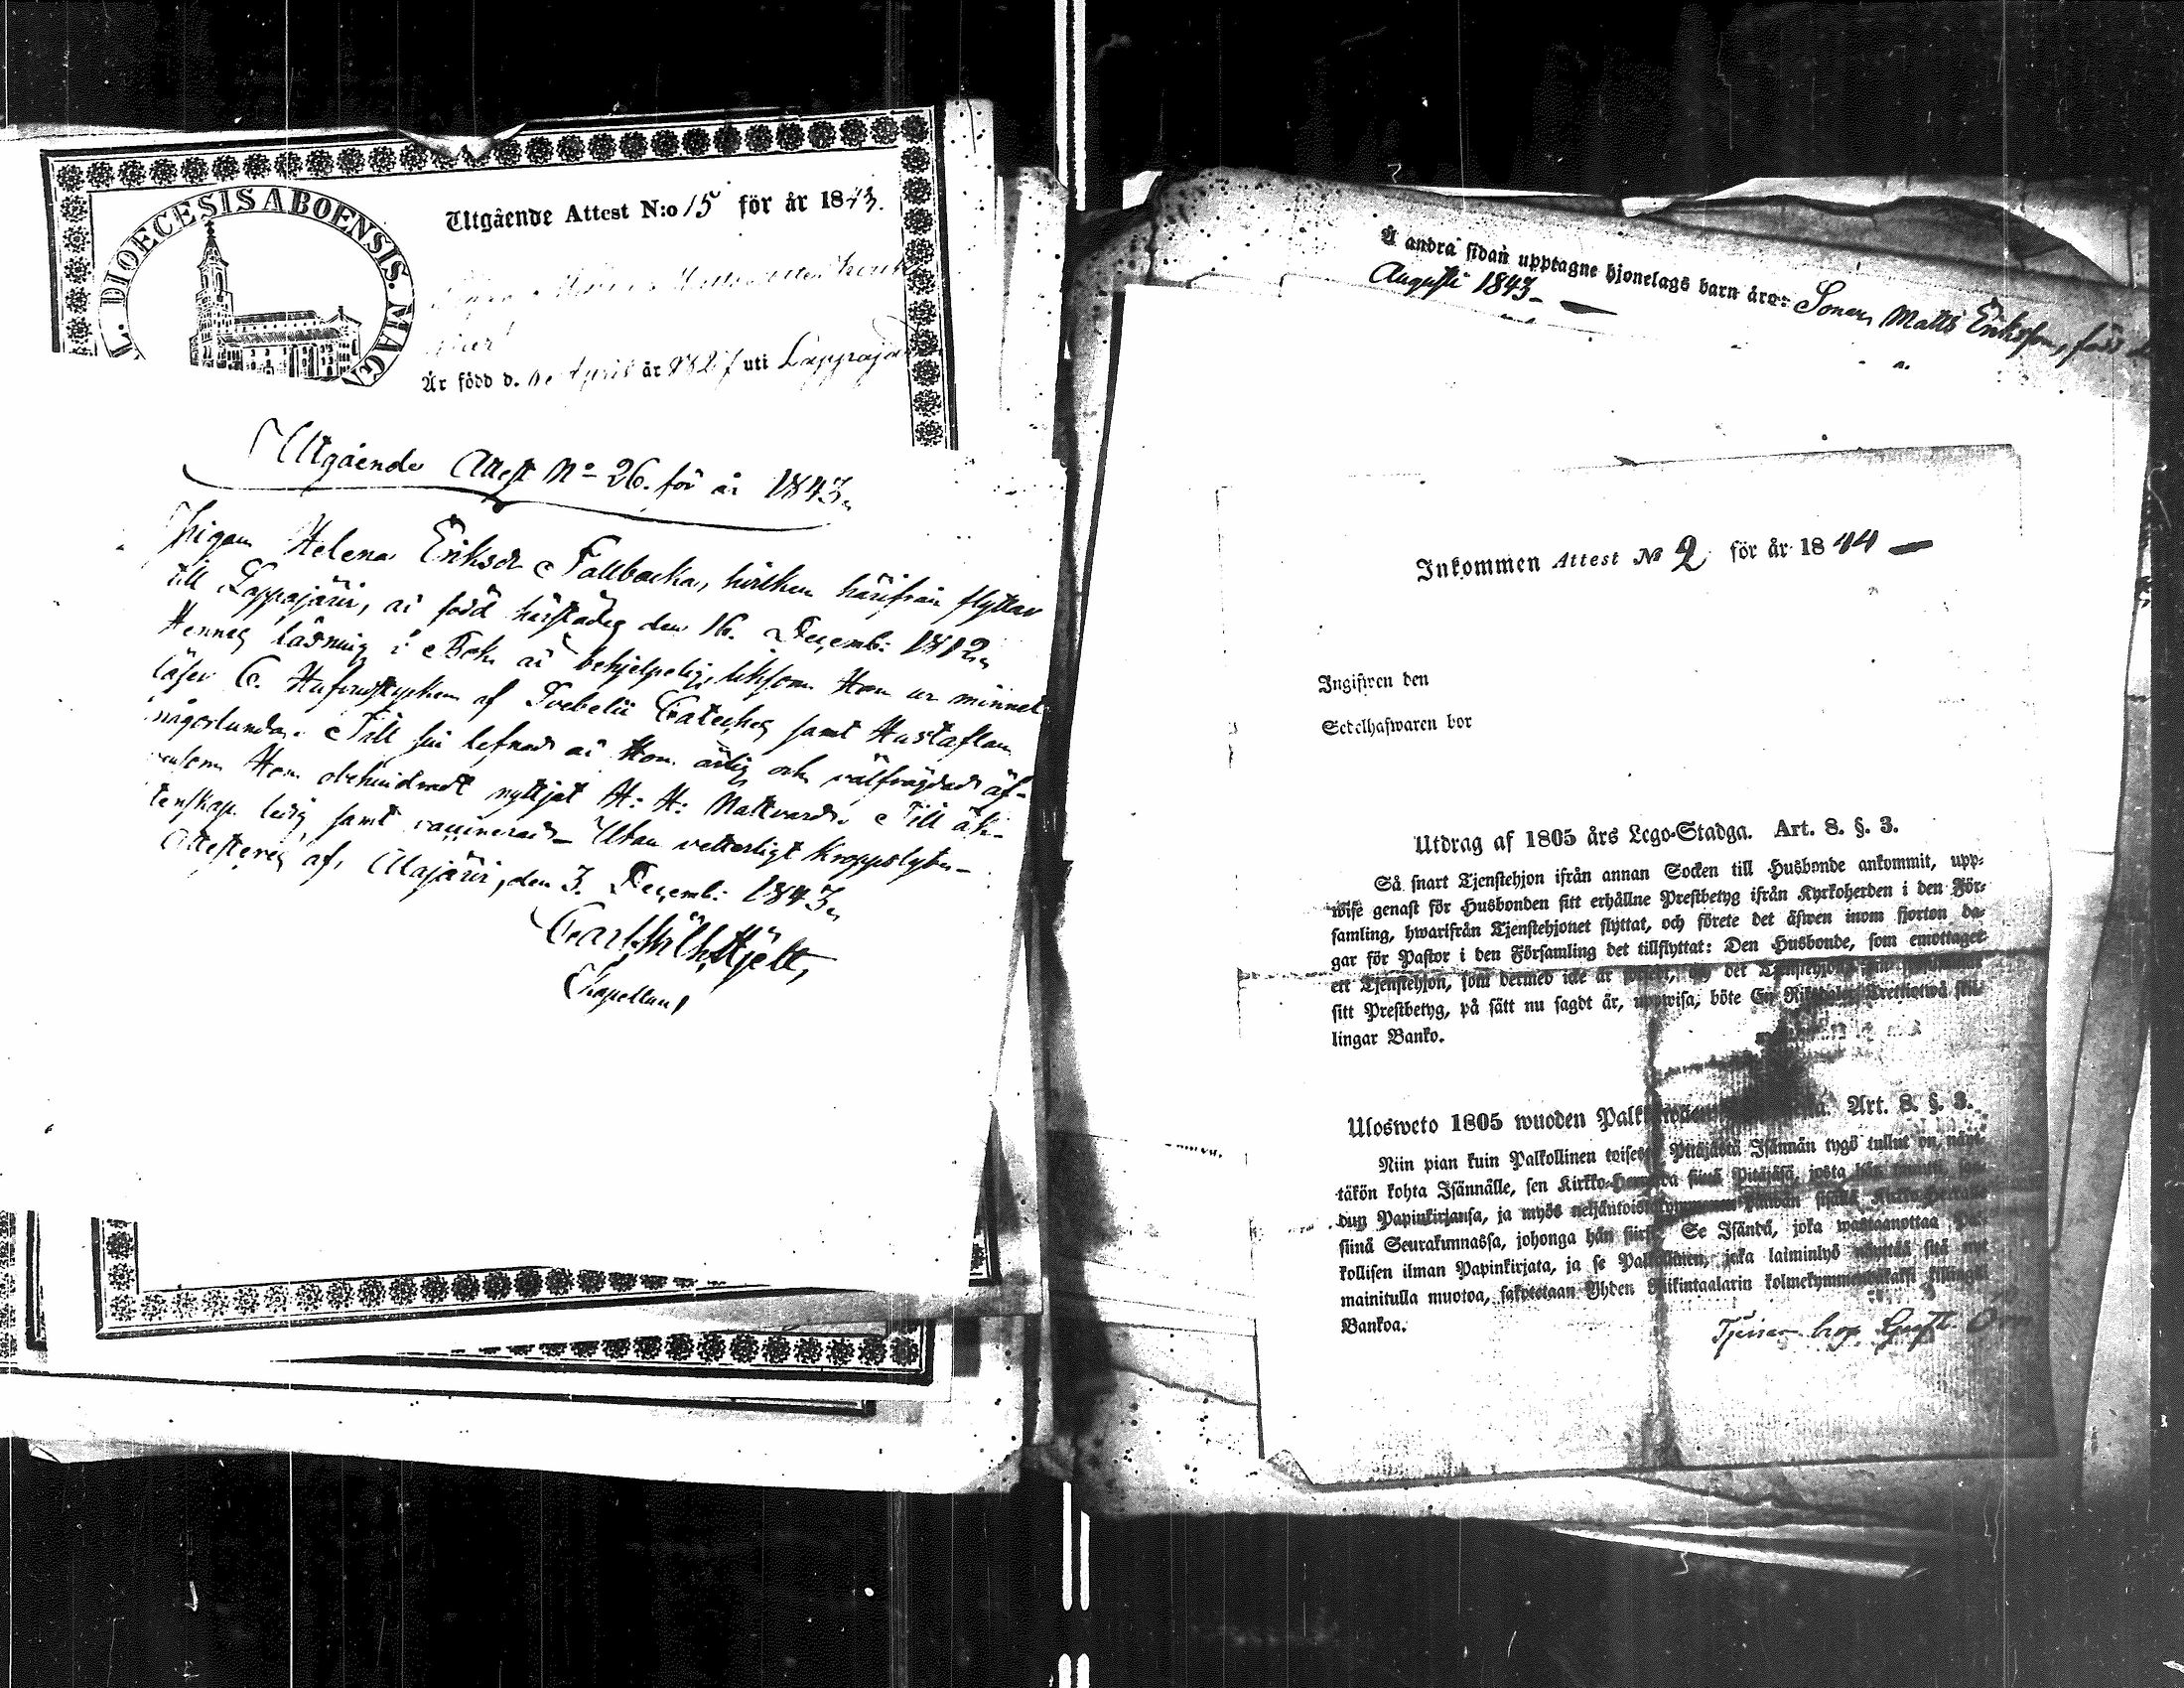 L. DIOECESIS ABOENSIS. MAG
Utgående Attest N:o 15 för år 1843.
Är född d. April år uti Lappajär
Utgående Attest No 26. för år 1843.
Pigan Helena Eriksdr Tallbacka, hvilken härifrån flyttar
till Lappajärvi, är född härstädes den 16. Decemb: 1812.
Hennes läsning i Bok är behjelpelig, liksom Hon ur minnet
läser C. Hufvudstycken af Svebelii Cateches samt Hustaflan
någorlunda. Till sin lefnad är Hon ärlig och välfrägdad äf-
vensom Hon obehindradt nyttjat H: H: Nattvard. Till äk-
tenskap ledig samt vaccinerad. Utan vetterligt kroppslyte.
Attesteras af, Alajärvi, den 3. Decemb: 1843.
Carl Wilh. Hjelt,
Chapellan
Å andra sidan upptagne hjonelags barn äro: Sonen Matts Eriksson, född d
Augusti 1843
Inkommen Attest No 2 för år 1844
Ingifwen den
Sedelhafwaren bor
Utdrag af 1805 års Lego-Stadga. Art. 8. §. 3.
Så snart Tjenstehjon ifrån annan Socken till Husbonde ankommit, upp-
wise genast för Husbonden sitt erhållne Prestbetyg ifrån Kyrkoherden i den För-
samling, hwarifrån Tjenstehjonet flyttat, och förete det äfwen inom fjorton da-
gar för Pastor i den Församling det tillflyttat: Den Husbonde, som emottager
ett Tjenstehjon, som dermed icke är försedt, och det Tjenstehjon,
sitt Prestbetyg, på sätt nu sagdt är, uppwisa, böte En Riksdaler Trettiotwå skil-
lingar Banko.
Ulosweto 1805 wuoden Art. 8. §. 3.
Niin pian kuin Palkollinen toisesta Pitäjästä Isännän tygö tullut on, näyt-
täkön kohta Isännälle, sen Kirkko-Herralda siinä Pitäjäsä, josta hän
dun Papinkirjansa, ja myös neljäntoistakymmenen sisällä Kirkko-Herralle
siinä Seurakunnassa, johonga hän Se Isändä, joka wastaanottaa Pal-
kollisen ilman Papinkirjata, ja se Palkollinen, joka laiminlyö näyttää sitä nyt
mainitulla muotoa, sakotetaan Yhden Riikintaalarin kolmekymmentäkaksi killingiä
Bankoa.